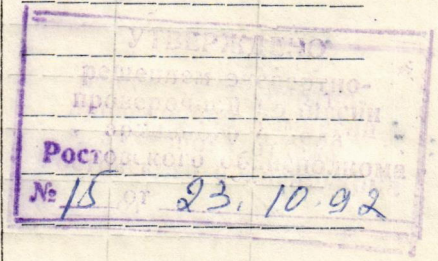 УТВЕРЖДЕНО
решением экспертно-
проверочной комиссии
Ростовского облисполкома
№ 15 от 23.10.92